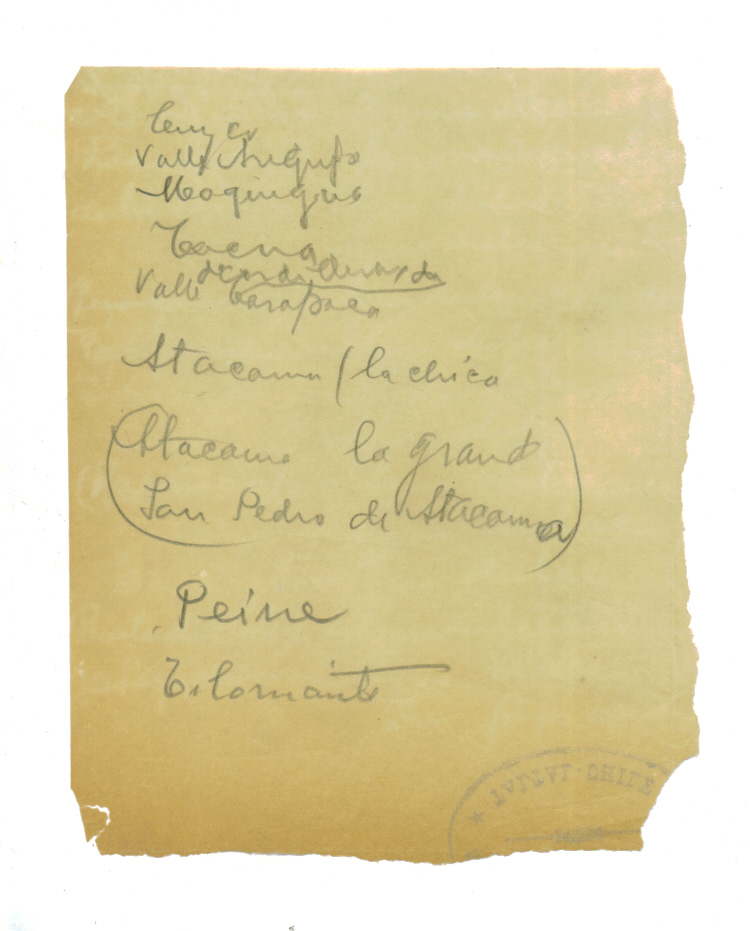 Valle Arequipa
Moquegua
Tacna
Valle Tarapaca
Atacama / la chica
(Atacama la grand
San Pedro de Atacama)
Peine
Tilomonte
* TALTAL-CHILE